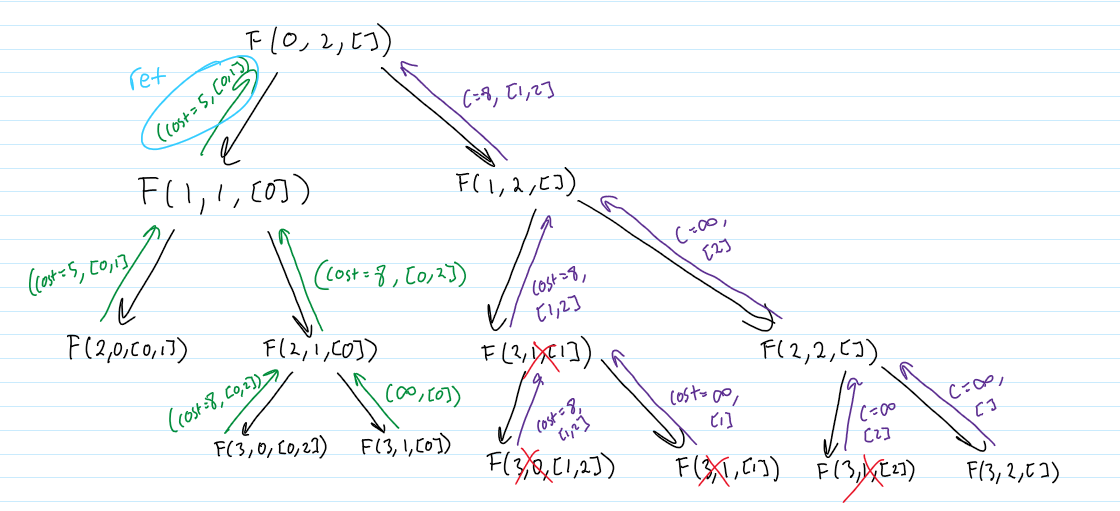 F(0, 2, [])
ret
(cost=5, [0,1])
C=8, [1,2]
F(1, 1, [0])
F(1, 2, [])
C=∞,
[2]
(cost=5, [0,1]
(cost=8, [0,2])
cost=8,
[1,2]
F(2,0,[0,1])
F(2,1,[0])
F(2,1,[1])
F(2,2,[])
(cost=8, [0,2])
(∞,[0])
cost=8,
[1,2]
cost=∞,
[1]
C=∞
[2]
C=∞,
[]
F(3,0,[0,2])
F(3,1,[0])
F(3,0,[1,2])
F(3,1,[1])
F(3,1,[2])
F(3,2,[])